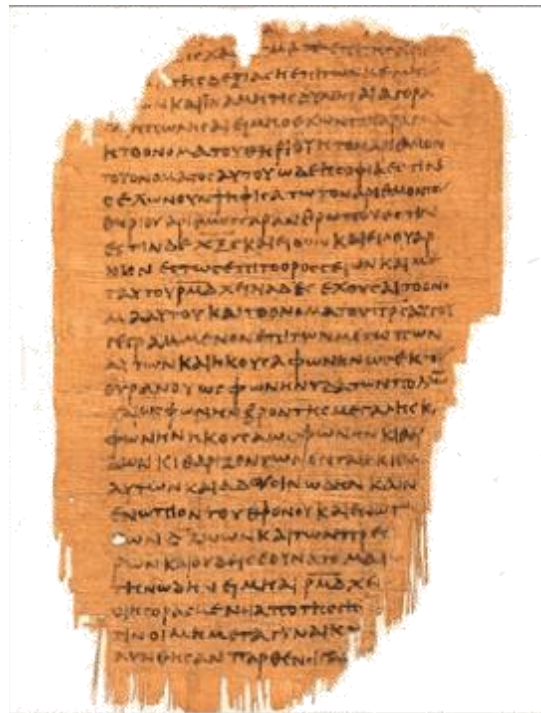 ΤΗϹΔΕΞΙΑϹΗΕΠΙΤΩΝ
ΩΝΚΑΙΙΝΑΜΗΤΙϹΔΥΝΗΤΑΙΑΓΟΡΑ
ΗΤΟΟΝΟΜΑΤΟΥΘΗΡΙΟΥΗΤΟΝΑΡΙΘΜΟΝ
ΤΟΥΟΝΟΜΑΤΟϹΑΥΤΟΥΩΔΕΗϹΟΦΙΑΕϹΤΙΝΟ
ΕΧΩΝΟΥΝΨΗΦΙϹΑΤΩΤΟΝΑΡΙΘΜΟΝΤΟΥ
ΘΗΡΙΟΥΑΡΙΘΜΟϹΓΑΡΑΝΘΡΩΠΟΥΕϹΤΙΝ
ΕϹΤΙΝΔΕΧΞϚΚΑΙΕΙΔΟΝΚΑΙΕΙΔΟΥΑΡ
ΝΙΟΝΕϹΤΩϹΕΠΙΤΟΟΡΟϹϹΕΙΩΝΚΑΙΜΕ
ΤΑΥΤΟΥΡΜΔΧΕΙΛΙΑΔΕϹΕΧΟΥϹΑΙΤΟΟΝΟ
ΜΑΑΥΤΟΥΚΑΙΤΟΟΝΟΜΑΤΟΥΠΡϹΑΥΤΟΥ
ΓΕΓΡΑΜΜΕΝΟΝΕΠΙΤΩΝΜΕΤΩΠΩΝ
ΑΥΤΩΝΚΑΙΗΚΟΥϹΑΦΩΝΗΝΩϹΕΚΤΟΥ
ΟΥΡΑΝΟΥΩϹΦΩΝΗΝΥΔΑΤΩΝΠΟΛΛΩ
ΚΑΙΩϹΦΩΝΗΝΒΡΟΝΤΗϹΜΕΓΑΛΗϹΚ
ΦΩΝΗΝΗΚΟΥϹΑΩϹΦΩΝΗΝΚΙΘΑ
ΔΩΝΚΙΘΑΡΙΖΟΝΤΩΝ
ΑΥΤΩΝΚΑΙΑΔΟΥϹΙΝΩΔΗΝΚΑΙΝ
ΕΝΩΠΙΟΝΤΟΥΘΡΟΝΟΥΚΑΙΕΝΩΠ
ΤΩΝΔΖΩΩΝΚΑΙΤΩΝΠΡΕϹ
ΡΩΝΚΑΙΟΥΔΕΙϹΕΔΥΝΑΤΟΜΑΘ
ΤΗΝΩΔΗΝΕΙΜΗΑΙΡΜΔΧΕΙ
ΟΙΗΓΟΡΑϹΜΕΝΟΙΑΠΟΤΗϹΓΗϹ
ΤΙΝΟΙΜΕΤΑΓΥΝΑΙΚ
ΛΥΝΘΗϹΑΝΠΑΡΘΕΝΟΙ